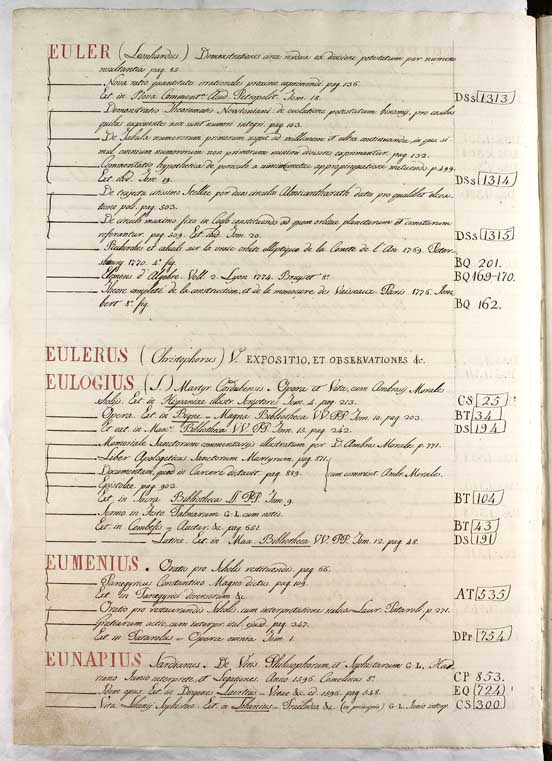 EULER (Leonhardus) Demonstrationes circa residua ex divisione potestatum per numeros
resultantia pag. 85.
Nova ratio quantitates irrationales proxime exprimendi pag. 136.
Est in Nova Comment. Acad. Petropolit. Tom. 18. DSs 1313
Demonstratio Theorematis Newtoniani de evolutione potestatum binomij, pro casibus
quibus exponentes non sunt numeri integri. pag. 103.
De Tabula numerorum primorum usque ad millionem et ultra continuanda, in qua si-
mul omnium numerorum non primorum minimi divisores exprimantur. pag. 132.
Commentatio hypothetica de periculo a nimia Cometae appropinquatione metuendo p. 499.
Est ibid. Tom. 19. DSs 1314
De trajectu citissimo Stellae per duos circulos Almicantharath datos pro qualibet eleva-
tione poli. pag. 503.
De circulo maximo fixo in Coelo constituendo ad quem orbitae planetarum et cometarum
referantur. pag. 509. Et ibid. Tom. 20. DSs 1315
Recherches et calculs sur la vraie orbite elliptique de la Comete de l'An 1769. Peters-
bourg 1770. 4° fig. BQ 201.
Elemens d'Algebre. Voll. 2. Lyon 1774. Bruyset 8°. BQ 169-170.
Theorie complete de la construction, et de la manoeuvre des Vaisseaux. Paris 1776. Jom-
bert 8° fig. BQ 162.
EULERUS (Christophorus) V. EXPOSITIO, ET OBSERVATIONES &c.
EULOGIUS (S.) Martyr Cordubensis. Opera et Vita, cum Ambrosij Morales
scholijs. Est in Hispaniae illustr. Scriptores Tom. 4. pag. 213. CS 25
Opera. Est in Bigne - Magna Bibliotheca VV. PP. Tom. 10. pag. 203. BT 34
Et est in Max. Bibliotheca VV. PP. Tom. 15. pag. 242. DS 194
Memoriale Sanctorum commentarijs illustratum per D. Ambros. Morales p. 771.
Liber Apologeticus Sanctorum Martyrum. pag. 871.
Documentum, quod in Carcere dictavit. pag. 889. cum comment. Ambr. Morales.
Epistolae. pag. 902.
Est in Sacra Bibliotheca SS. PP. Tom. 9. BT 104
Sermo in Festo Palmarum G. L. cum notis.
Est in Combefis - Auctar. &c. pag. 651. BT 43
Latine. Est in Max. Bibliotheca VV. PP. Tom. 12. pag. 48. DS 191
EUMENIUS. Oratio pro Scholis restituendis. pag. 66.
Panegyricus Constantino Magno dictus. pag. 109.
Est in Panegyrici diversorum &c. AT 535
Oratio pro restaurandis Scholis, cum interpretatione italica Laur. Pataroli. p. 271.
Gratiarum actio, cum interpr. ital. ejusd. pag. 347.
Est in Patarolus - Opera omnia Tom. 1. DPr 754
EUNAPIUS Sardianus. De Vitis Philosophorum, et Sophistarum G. L. Ha-
driano Junio interprete, et Legationes. Anno 1596. Comelinus 8°. CP 853.
Idem opus. Est in Diogenes Laertius - Vitae &c. d. 1596. pag. 548. EQ 724
Vita Libanij Sophistae. Est in Libanius - Praeludia &c. (in principio) G. L. Junio interp. CS 300